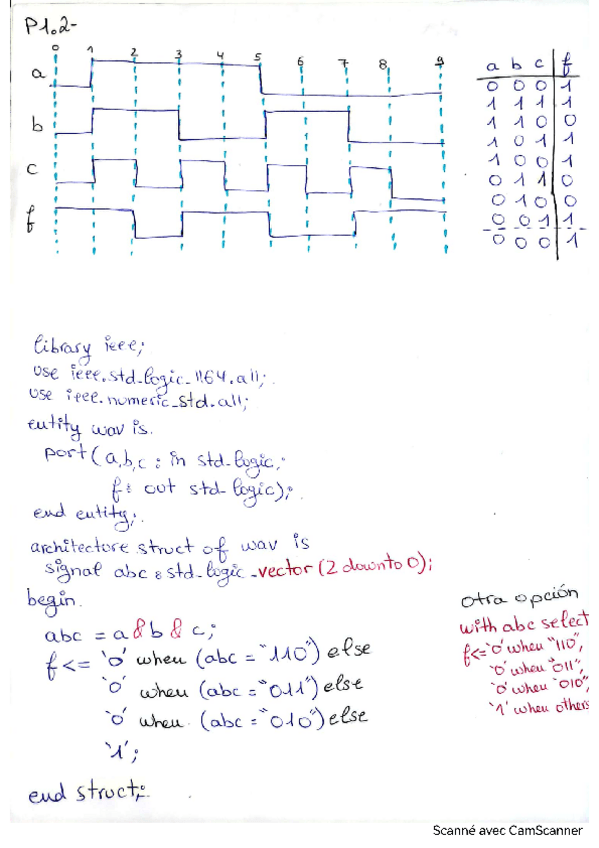 P1.2-
0 1 2 3 4 5 6 7 8 9
a
b
c
f
a b c f
0 0 0 1
1 1 1 1
1 1 0 0
1 0 1 1
1 0 0 1
0 1 1 0
0 1 0 0
0 0 1 1
0 0 0 1
library ieee;
use ieee.std_logic_1164.all;
use ieee.numeric_std.all;
entity wav is
port(a,b,c : in std_logic;
f: out std_logic);
end entity;
architecture struct of wav is
signal abc : std_logic_vector (2 downto 0);
begin
abc = a & b & c;
f <= '0' when (abc = "110") else
'0' when (abc = "011") else
'0' when (abc = "010") else
'1';
end struct;
otra opción
with abc select
f<= '0' when "110",
'0' when "011",
'0' when "010",
'1' when others
Scanné avec CamScanner